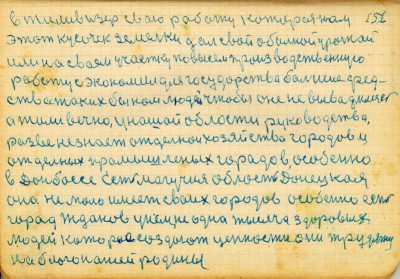 в жизнь через сваю работу которая нам 156
этот кусочек земелки дал свой обильной урожай
или на своем участку повысел производственную
работу с экономил для государства больше сред-
ства таких бы нам людей чтобы оне не
а жили вечно, у нашой области руководства,
разве не знает отделной хозяйства городов и
отделных промышленых горадов, особенно
в Донбоссе есть магучия область Донецкая
она не мало имеет своих городов особенно есть
горад Жданов у нем не одна тысеча здоровых
людей которое создают ценности они трудяту
на благо нашей родины